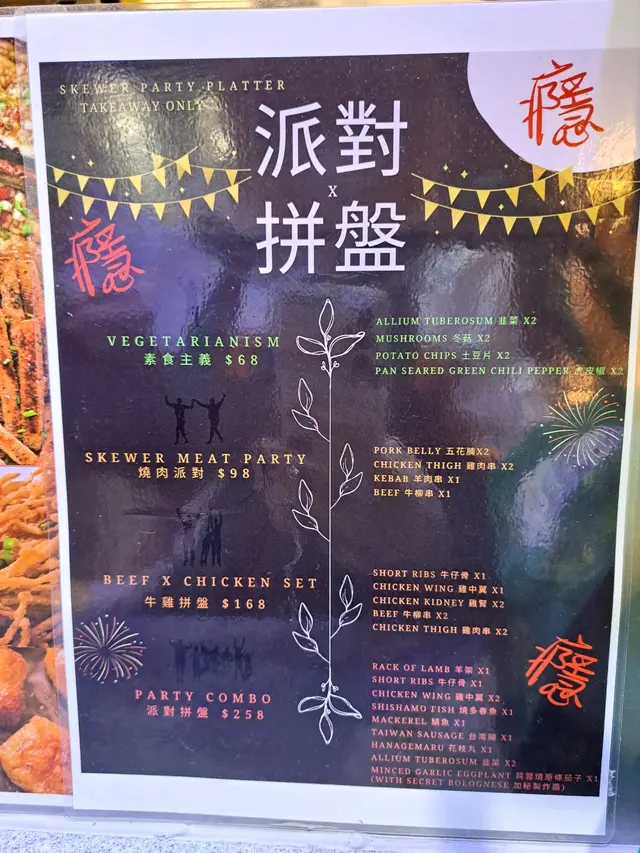 SKEWER PARTY PLATTER
TAKEAWAY ONLY
派對
X
拼盤
癮
癮
VEGETARIANISM
素食主義 $68
ALLIUM TUBEROSUM 韭菜 X2
MUSHROOMS 冬菇 X2
POTATO CHIPS 土豆片 X2
PAN SEARED GREEN CHILI PEPPER 虎皮椒 X2
SKEWER MEAT PARTY
燒肉派對 $98
PORK BELLY 五花腩X2
CHICKEN THIGH 雞肉串 X2
KEBAB 羊肉串 X1
BEEF 牛柳串 X1
BEEF X CHICKEN SET
牛雞拼盤 $168
SHORT RIBS 牛仔骨 X1
CHICKEN WING 雞中翼 X1
CHICKEN KIDNEY 雞腎 X2
BEEF 牛柳串 X2
CHICKEN THIGH 雞肉串 X2
癮
PARTY COMBO
派對拼盤 $258
RACK OF LAMB 羊架 X1
SHORT RIBS 牛仔骨 X1
CHICKEN WING 雞中翼 X2
SHISHAMO FISH 燒多春魚 X1
MACKEREL 鯖魚 X1
TAIWAN SAUSAGE 台灣腸 X1
HANAGEMARU 花枝丸 X1
ALLIUM TUBEROSUM 韭菜 X2
MINCED GARLIC EGGPLANT 蒜蓉燒原條茄子 X1
(WITH SECRET BOLOGNESE 加秘製炸醬)